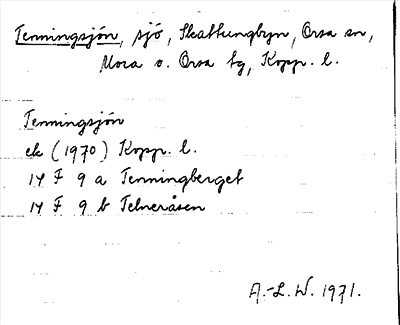 Tenningsjön, sjö, Skattungbyn, Orsa sn,
Mora o. Orsa tg, Kopp. l.
Tenningsjön
ek (1970) Kopp. l.
14 F 9 a Tenningberget
14 F 9 b Telneråsen
A.-L. W. 1971.